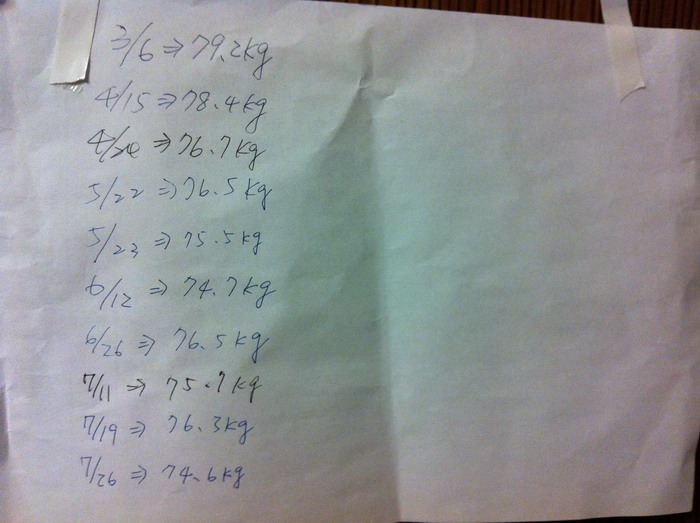 3/6 ⇒ 79.2kg
4/15 ⇒ 78.4kg
⇒ 76.7kg
5/22 ⇒ 76.5kg
5/23 ⇒ 75.5kg
6/12 ⇒ 74.7kg
6/26 ⇒ 76.5kg
7/11 ⇒ 75.7kg
7/19 ⇒ 76.3kg
7/26 ⇒ 74.6kg